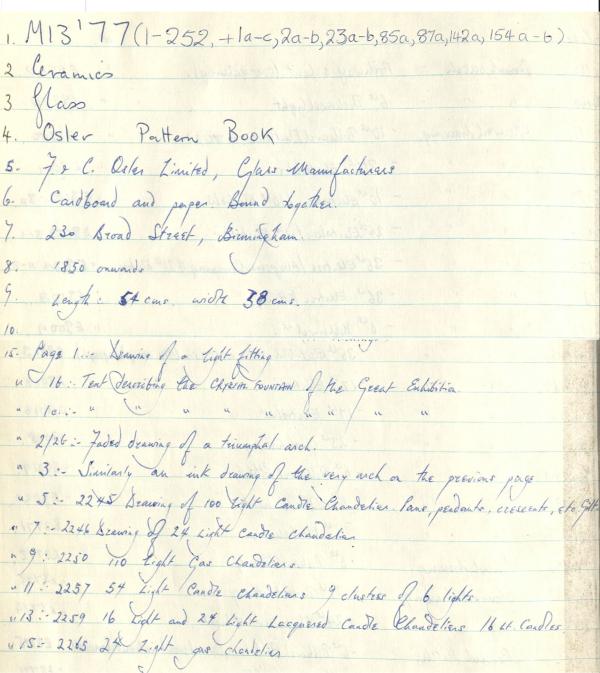 1. M13'77 (1-252, +1a-c, 2a-b, 23a-b, 85a, 87a, 142a, 154a-b)
2 Ceramics
3 Glass
4. Osler Pattern Book
5. F & C. Osler Limited, Glass Manufacturers
6. Cardboard and paper. Bound together.
7. 230 Broad Street, Birmingham.
8. 1850 onwards
9. Length: 54 cms. width 38 cms.
10.
15. Page 1:- Drawing of a light fitting
" 1b:- Text describing the CRYSTAL FOUNTAIN of the Great Exhibition.
" 1c:- " " " " " " " "
" 2/2b:- Faded drawing of a triumphal arch.
" 3:- Similarly an ink drawing of the very arch on the previous page
" 5:- 2245 Drawing of 100 Light Candle Chandelier. Pans, pendants, crescents, etc.
" 7:- 2246 Drawing of 24 Light candle chandelier
" 9:- 2250 110 Light Gas Chandeliers.
" 11:- 2257 54 Light Candle chandeliers 9 clusters of 6 lights.
" 13:- 2259 16 Light and 24 Light Lacquered Candle Chandeliers 16 Lt. Candles.
" 15:- 2265 24 Light gas chandelier